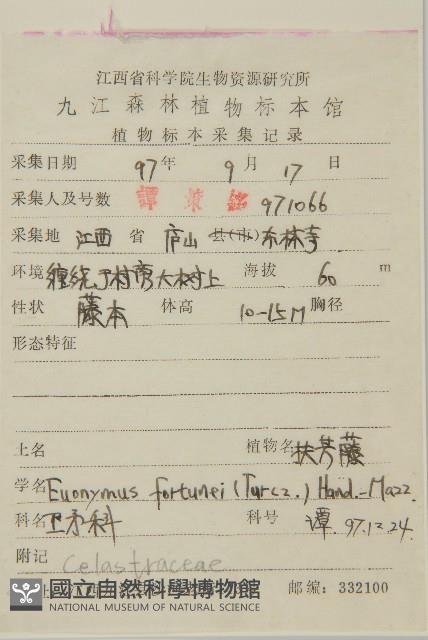 江西省科学院生物资源研究所
九江森林植物标本馆
植物标本采集记录
采集日期 97年 9月 17日
采集人及号数 譚策銘 971066
采集地 江西 省 庐山 县(市) 东林寺
环境 缠绕于村旁大树上 海拔 60 m
性状 藤本 体高 10-15M 胸径
形态特征
土名 植物名 扶芳藤
学名 Euonymus fortunei (Turcz.) Hand.-Mazz.
科名 卫矛科 科号 谭 97.12.24.
附记 Celastraceae
國立自然科學博物館 邮编: 332100
NATIONAL MUSEUM OF NATURAL SCIENCE